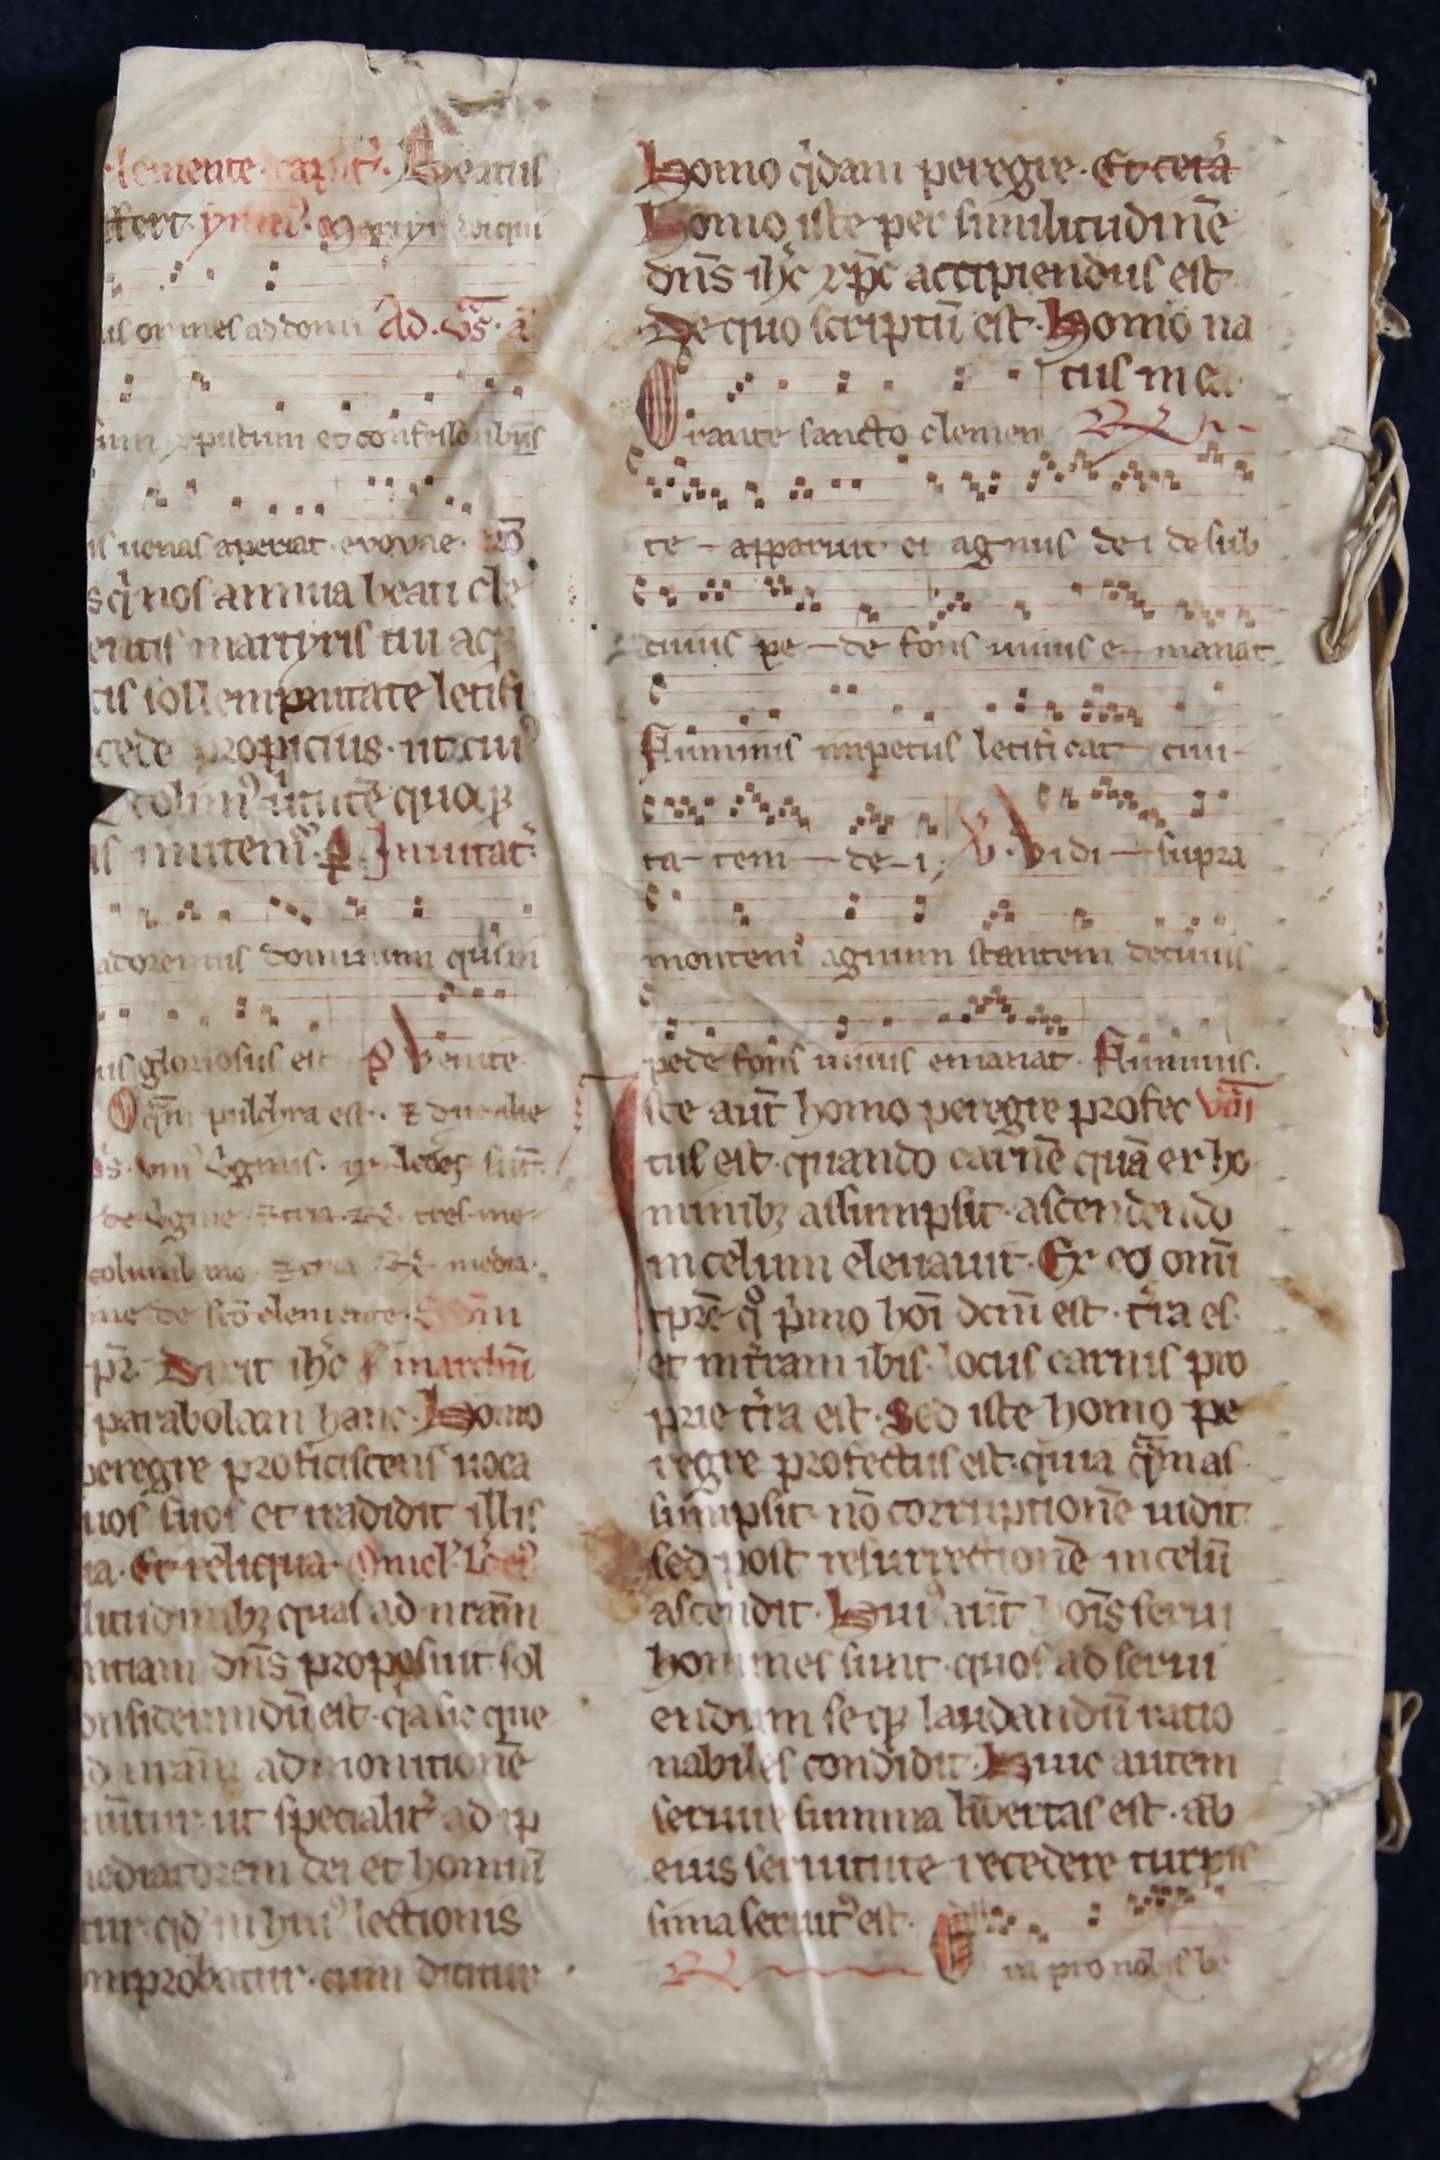 clemente. capit'. Beatus
ffert. ymn'. Martyr dei qui
us omnes ad domi Ad. vs̄. a
sum xp̄utum et confessoribus
is uenas aperiat. evovae.
s q̇ nos annua beati cle
entis martyris tui atq̨
tis sollempnitate letifi
cede propicius. ut cui'
colim' uirtutē quoq̨
is imitem'. Inuitat'.
adoremus dominum qm̄ in
us gloriosus est Ps Venite
O qm̄ pulchra est.
de s̄co clemente.
Dixit ih̄c marchū
parabolam hanc. Homo
peregre proficiscens uoca
uos suos et tradidit illis
na. Et reliqua. Omel'
litudinibꝫ quas ad nr̄am
ntiam dn̄s proposuit sol
onsiderandū est. q̇a sic que
ad nr̄am admonitionē
untur. ut specialit' ad ip
mediatorem dei et hominū
tur. qd' in hui' lectionis
mprobatur. cum dicitur
Homo q̇dam peregre. Et cetā
Homo iste per similitudinē
dn̄s ih̄c xp̄c accipiendus est
De quo scriptū est. Homo na
tus in ea.
Orante sancto clemen
te apparuit ei agnus dei de sub
cuius pe de fons uiuus e manat
Fluminis impetus letificat ciui
ta tem de i. V. Vidi supra
montem agnum stantem de cuius
pede fons uiuus emanat. Fluminis.
Iste aut̄ homo peregre profec
tus est. quando carnē quā ex ho
minibꝫ assumpsit. ascendendo
in celum eleuauit. Ex eo om̄i
tp̄re q̊ p̍mo hoī dcm̄ est. t̍ra es.
et in t̍ram ibis. locus carnis pro
prie t̍ra est. Sed iste homo pe
regre profectus est. quia quā as
sumpsit. nō corruptionē uidit
sed post resurrectionē in celū
ascendit. Hui' aut̄ hoīs serui
homines sunt. quos ad serui
endum se q̨ laudandū ratio
nabiles condidit. Huic autem
seruire summa libertas est. ab
eius seruitute recedere turpis
sima seruit' est.
ra pro nobis be